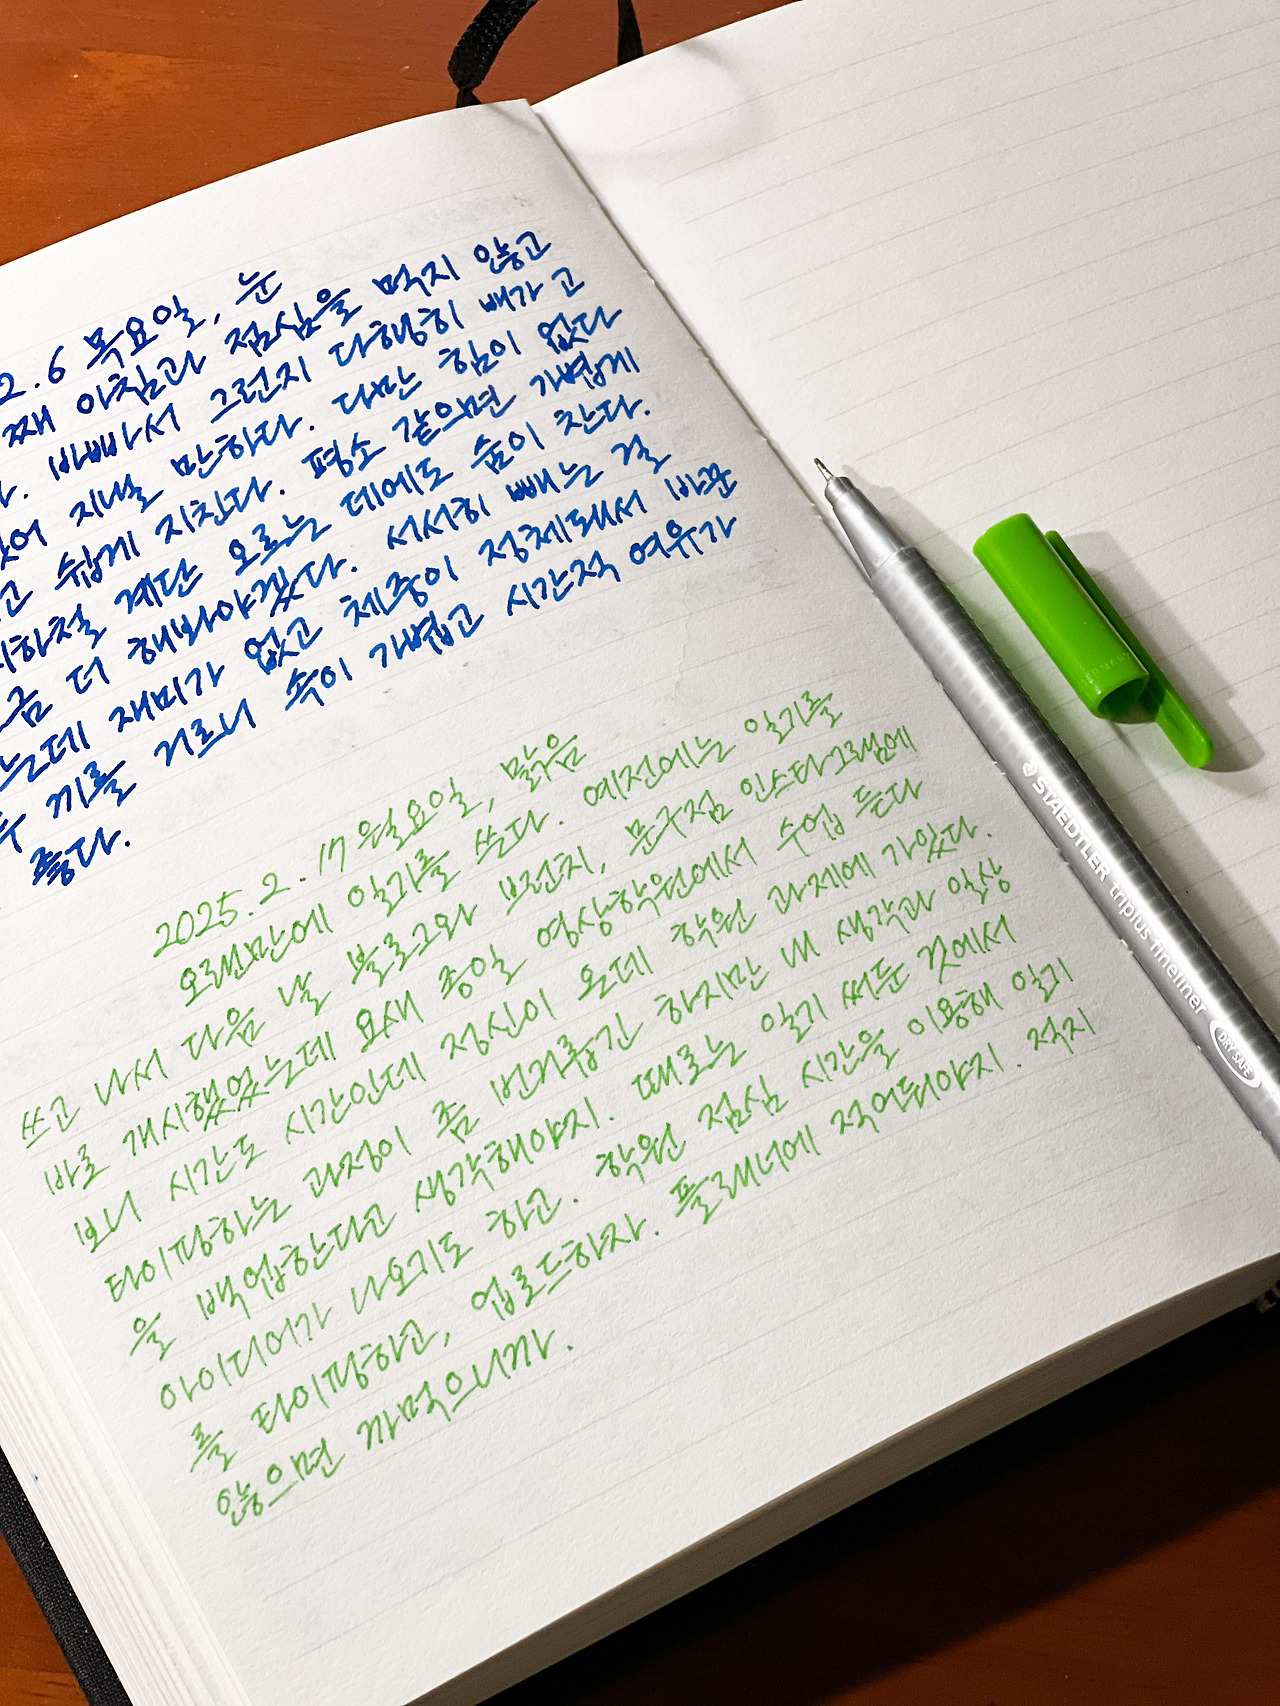 2.6 목요일, 눈
째 아침과 점심을 먹지 않고
. 바빠서 그런지 다행히 배가 고
어 지낼 만하다. 다만 힘이 없다
고 쉽게 지친다. 평소 같으면 가볍게
지하철 계단 오르는 데에도 숨이 찬다.
금 더 해봐야겠다. 서서히 빼는 걸
는데 재미가 없고 체중이 정체돼서 바꾼
두 끼를 거르니 속이 가볍고 시간적 여유가
좋다.
2025.2.17 월요일, 맑음
오랜만에 일기를 쓴다. 예전에는 일기를
쓰고 나서 다음 날 블로그와 브런치, 문구점 인스타그램에
바로 게시했었는데 요새 종일 영상학원에서 수업 듣다
보니 시간도 시간인데 정신이 온데 학원 과제에 가있다.
타이핑하는 과정이 좀 번거롭긴 하지만 내 생각과 일상
을 백업한다고 생각해야지. 때로는 일기 써둔 것에서
아이디어가 나오기도 하고. 학원 점심 시간을 이용해 일기
를 타이핑하고, 업로드하자. 플래너에 적어둬야지. 적지
않으면 까먹으니까.
STAEDTLER triplus fineliner
DRY SAFE
GERMANY